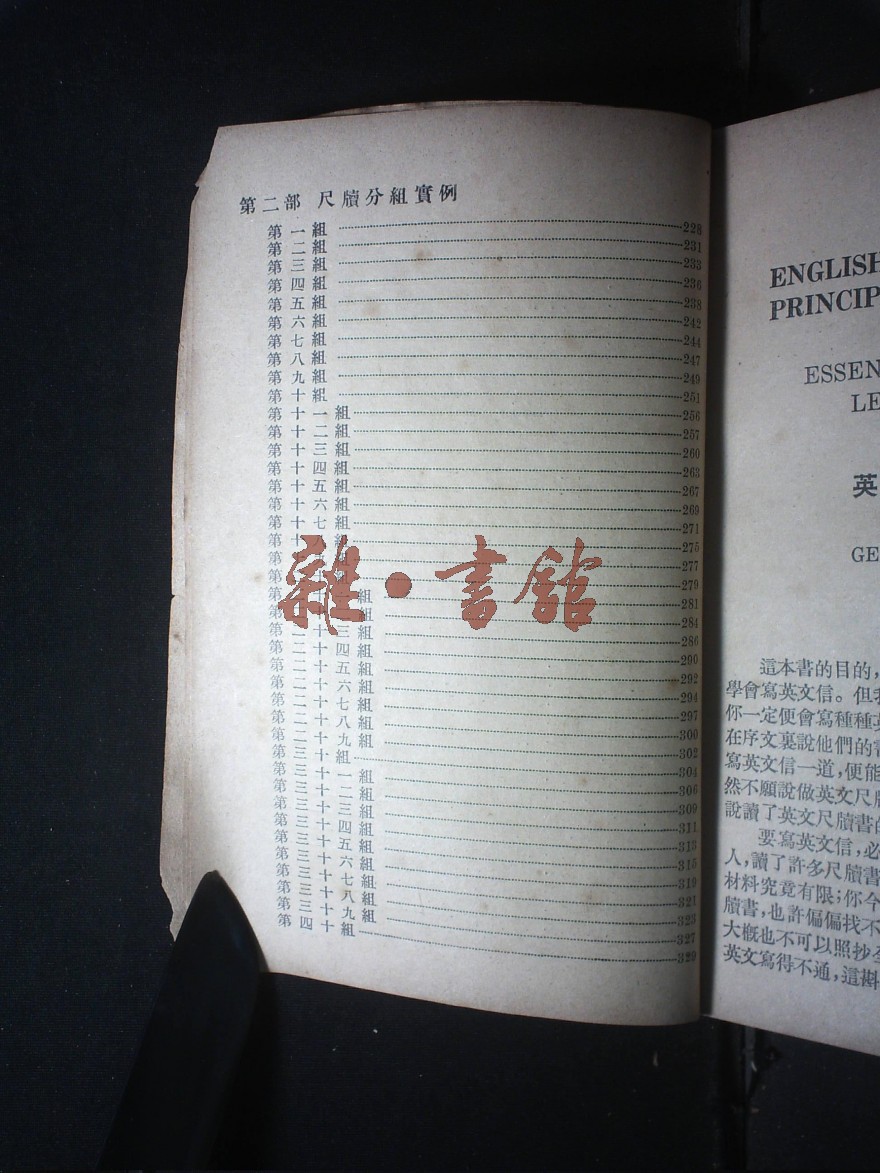 第二部 尺牘分組實例
第一組 228
第二組 231
第三組 233
第四組 236
第五組 238
第六組 242
第七組 244
第八組 247
第九組 249
第十組 251
第十一組 256
第十二組 257
第十三組 260
第十四組 263
第十五組 267
第十六組 269
第十七組 271
第 275
第 277
第 279
第 組 281
第 組 284
第二十三組 286
第二十四組 290
第二十五組 292
第二十六組 294
第二十七組 297
第二十八組 300
第二十九組 302
第三十組 304
第三十一組 306
第三十二組 309
第三十三組 311
第三十四組 313
第三十五組 315
第三十六組 319
第三十七組 321
第三十八組 323
第三十九組 327
第四十組 329
雜·書館
ENGLISH
PRINCIP
ESSEN
LE
英
GE
這本書的目的，
學會寫英文信。但我
你一定便會寫種種英
在序文裏說他們的書
寫英文信一道，便能
然不願說做英文尺牘
說讀了英文尺牘書的
要寫英文信，必
人，讀了許多尺牘書
材料究竟有限；你今
牘書，也許偏偏找不
大概也不可以照抄全
英文寫得不通，這斟